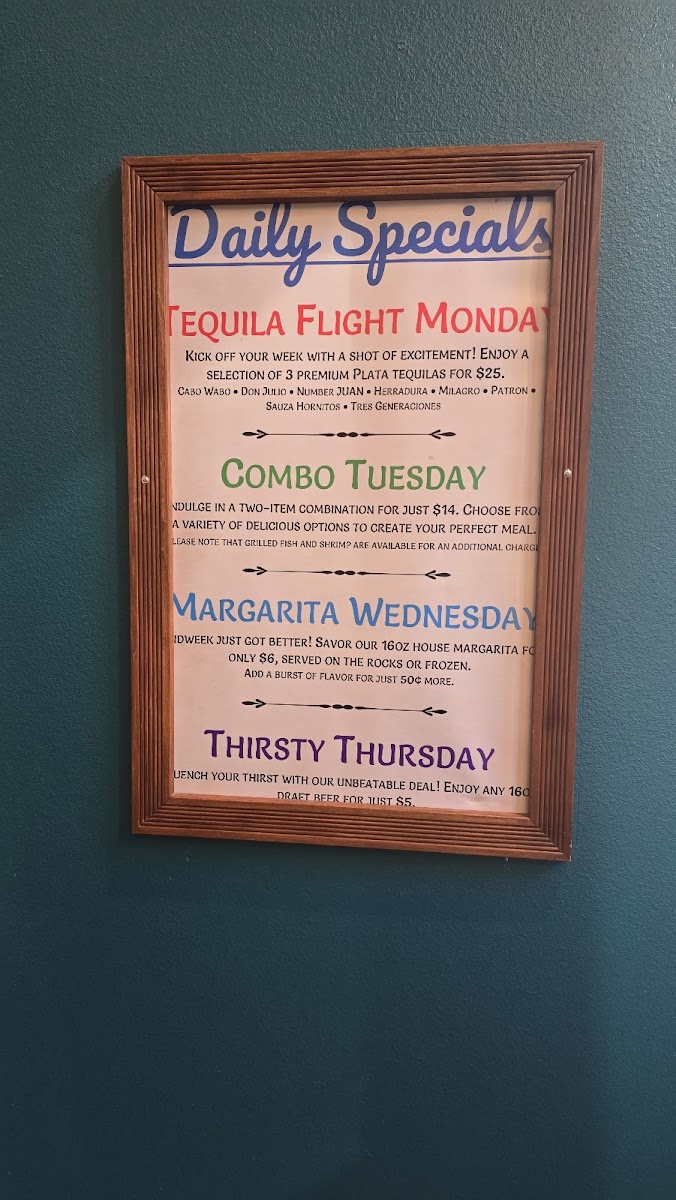 Daily Specials
TEQUILA FLIGHT MONDAY
KICK OFF YOUR WEEK WITH A SHOT OF EXCITEMENT! ENJOY A
SELECTION OF 3 PREMIUM PLATA TEQUILAS FOR $25.
CABO WABO • DON JULIO • NUMBER JUAN • HERRADURA • MILAGRO • PATRON •
SAUZA HORNITOS • TRES GENERACIONES
COMBO TUESDAY
NDULGE IN A TWO-ITEM COMBINATION FOR JUST $14. CHOOSE FRO
A VARIETY OF DELICIOUS OPTIONS TO CREATE YOUR PERFECT MEAL.
LEASE NOTE THAT GRILLED FISH AND SHRIMP ARE AVAILABLE FOR AN ADDITIONAL CHARGE
MARGARITA WEDNESDAY
IDWEEK JUST GOT BETTER! SAVOR OUR 16OZ HOUSE MARGARITA FO
ONLY $6, SERVED ON THE ROCKS OR FROZEN.
ADD A BURST OF FLAVOR FOR JUST 50¢ MORE.
THIRSTY THURSDAY
UENCH YOUR THIRST WITH OUR UNBEATABLE DEAL! ENJOY ANY 16O
DRAFT BEER FOR JUST $5.